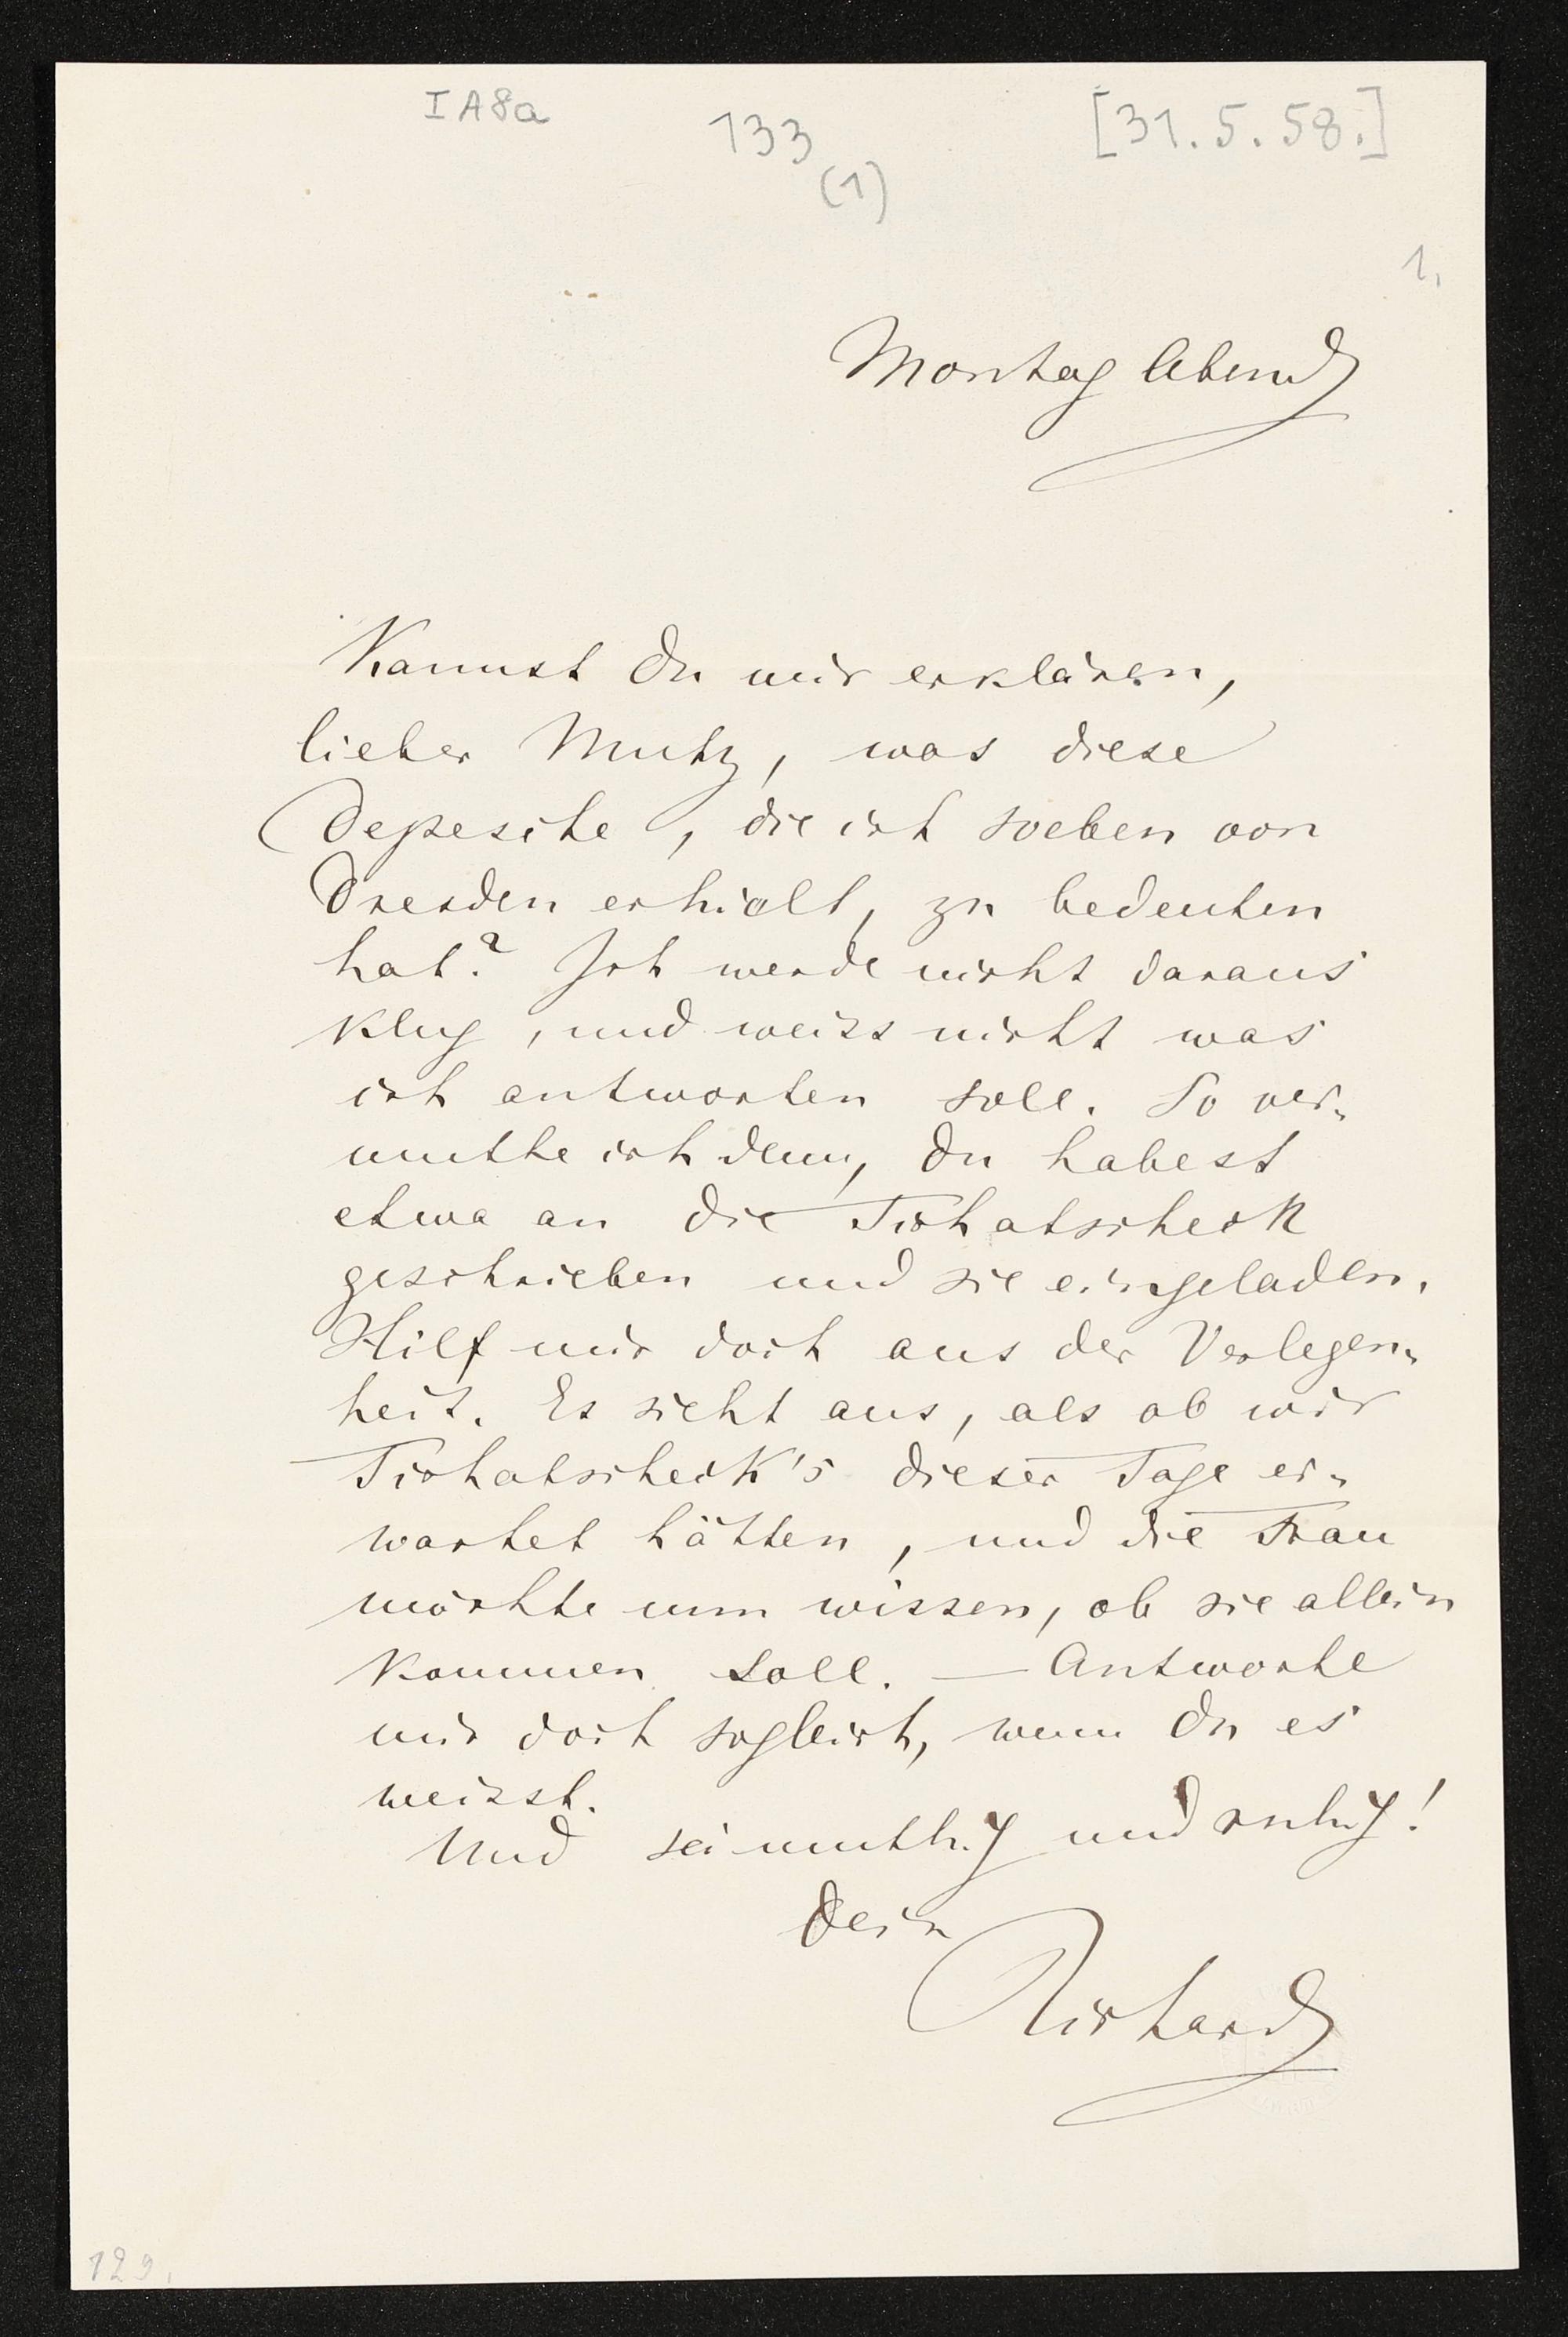 IA8a
133
[31.5.58.]
(1)
1.
Montag Abend
Kannst Du mir erklären,
lieber Mutz, was diese
Depesche, die ich soeben von
Dresden erhielt, zu bedeuten
hat? Ich werde nicht daraus
klug, und weiss nicht was
ich antworten soll. So ver-
muthe ich denn, Du habest
etwa an die Tichatscheck
geschrieben und sie eingeladen.
Hilf mir doch aus der Verlegen-
heit. Es sieht aus, als ob wir
Tichatscheck's dieser Tage er-
wartet hätten, und die Frau
möchte nun wissen, ob sie allein
kommen soll. — Antworte
mir doch sogleich, wenn Du es
weisst.
Und sei muthig und ruhig!
Dein
Richard
129.